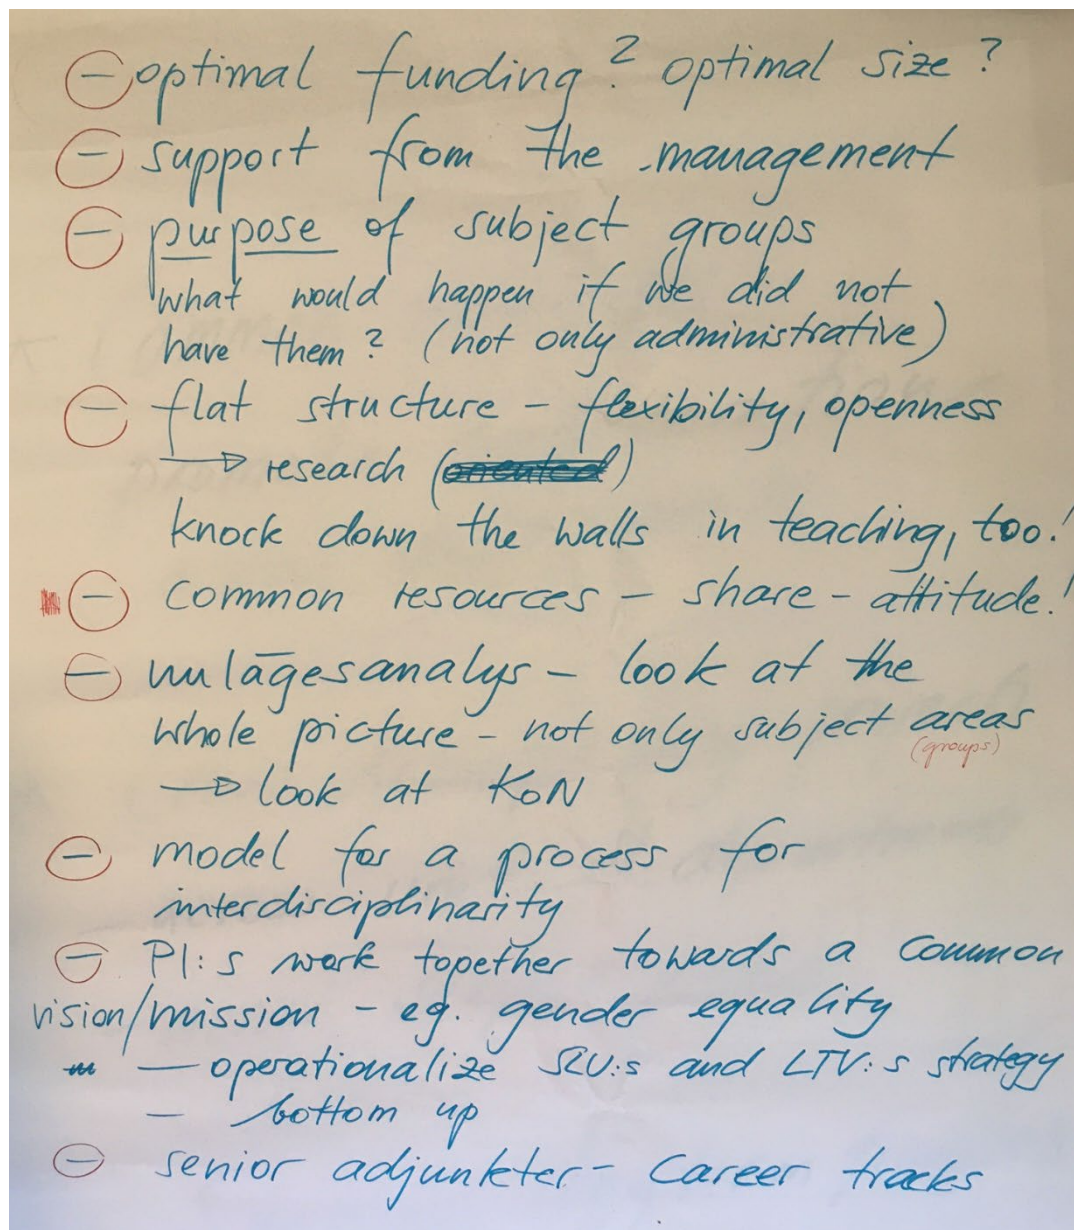 - optimal funding? optimal size?
- support from the management
- purpose of subject groups
what would happen if we did not
have them? (not only administrative)
- flat structure - flexibility, openness
→ research (oriented)
knock down the walls in teaching, too!
- common resources - share - attitude!
- nulägesanalys - look at the
whole picture - not only subject areas
(groups)
→ look at KoN
- model for a process for
interdisciplinarity
- PI:s work together towards a common
vision/mission - eg. gender equality
- operationalize SLU:s and LTV:s strategy
- bottom up
- senior adjunkter - career tracks